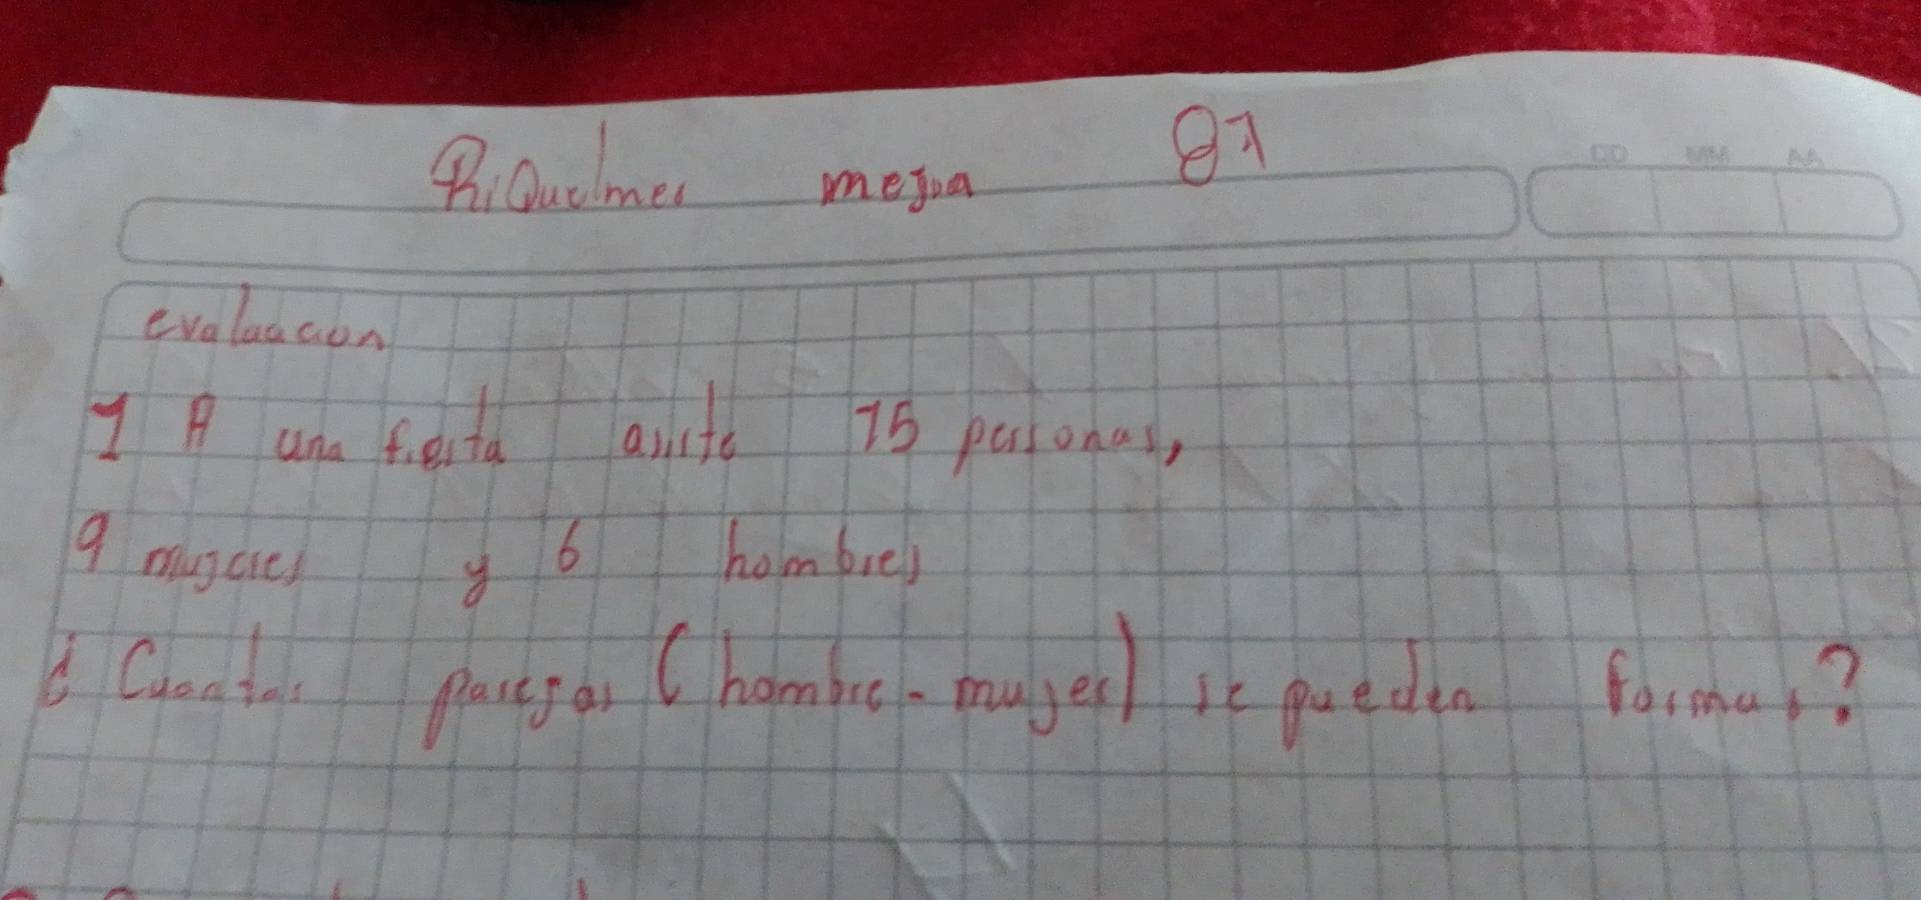 RiQuelmes mejia 81
DD MM AA
evaluacion
1 A una fiesta asiste 15 personas,
9 mujeres y 6 hombres
¿ Cuantas parejas (hombre-mujer) se pueden formar?